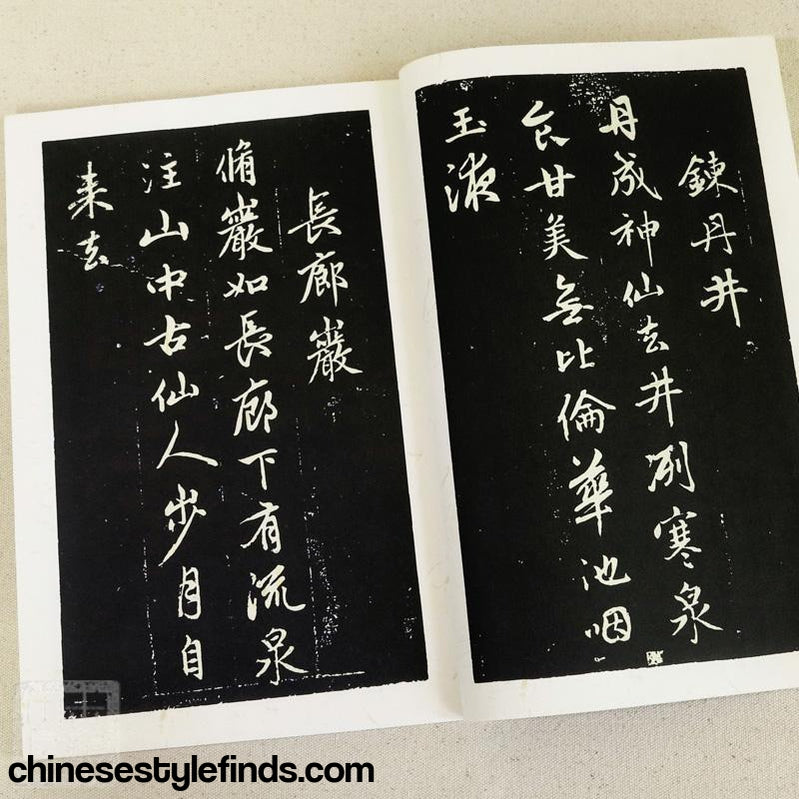 鍊丹井
丹成神仙去井冽寒泉
食甘美無比倫華池咽
玉液
長廊巖
脩巖如長廊下有流泉
注山中古仙人步月自
来去
chinesestylefinds.com